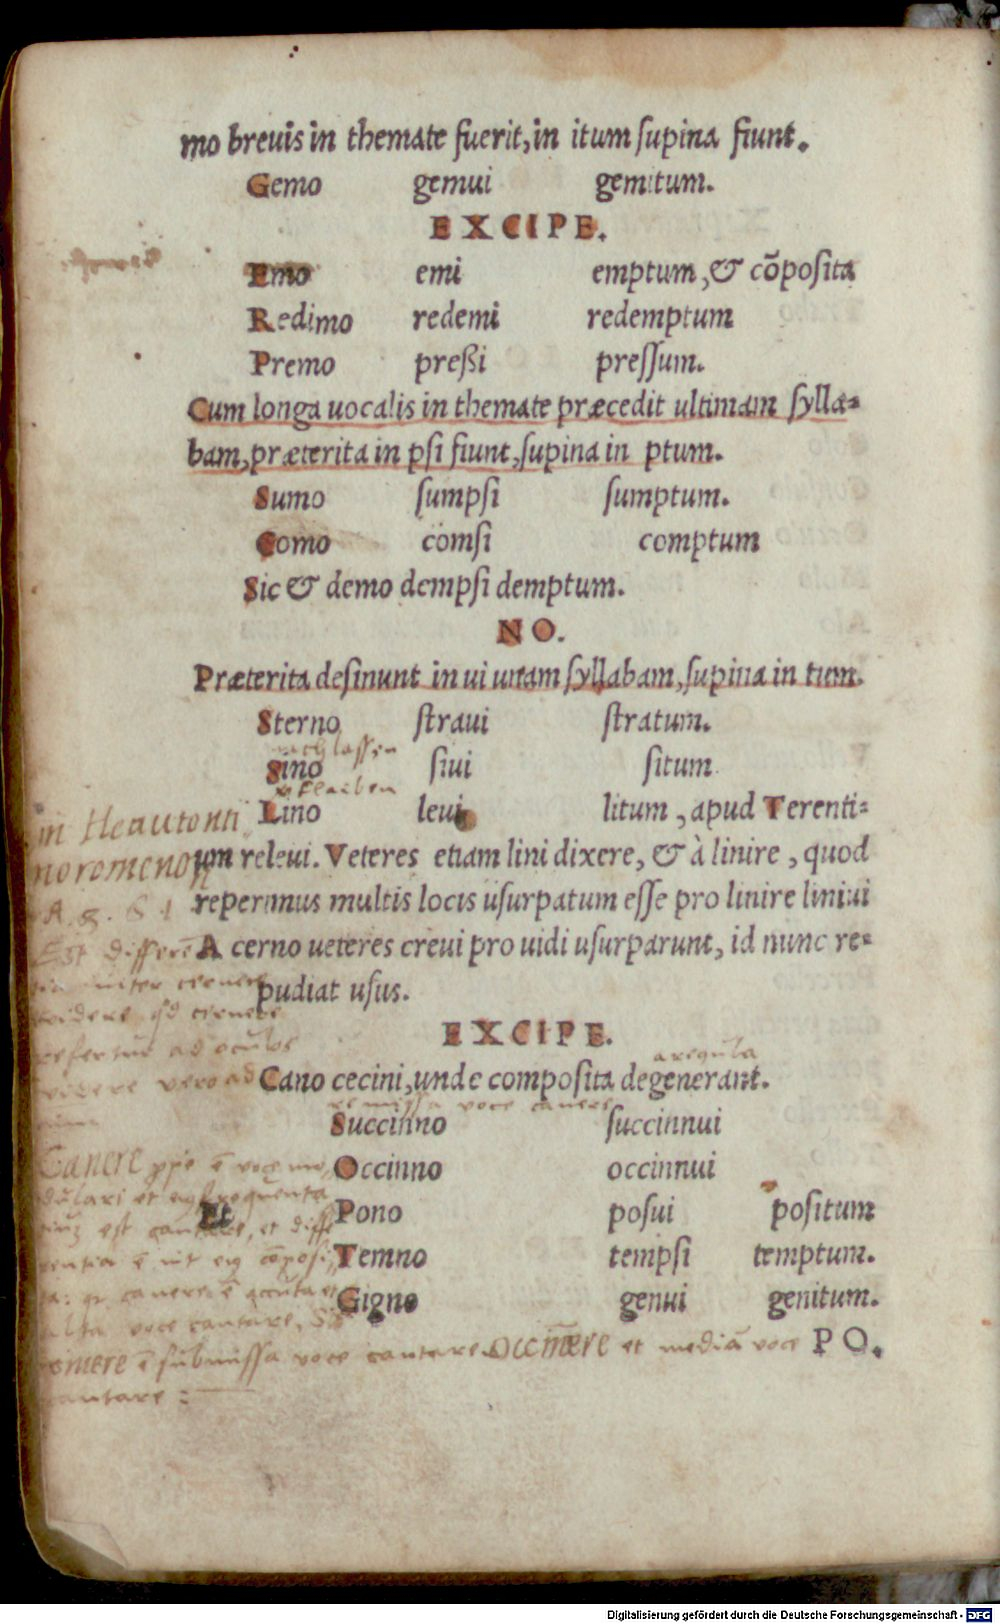 mo breuis in themate fuerit, in itum ſupina fiunt.
Gemo gemui gemitum.
EXCIPE.
Emo emi emptum, & cōpoſita
Redimo redemi redemptum
Premo preßi preſſum.
Cum longa uocalis in themate præcedit ultimam ſylla-
bam, præterita in pſi fiunt, ſupina in ptum.
Sumo ſumpſi ſumptum.
Como comſi comptum
Sic & demo dempſi demptum.
NO.
Præterita deſinunt in ui unam ſyllabam, ſupina in tum.
Sterno ſtraui ſtratum.
nachlaſſen
Sino ſiui ſitum
Lino leui litum, apud Terenti-
in Heautonti
um releui. Veteres etiam lini dixere, & à linire, quod
noromenon
reperimus multis locis uſurpatum eſſe pro linire liniui
A cerno ueteres creui pro uidi uſurparunt, id nunc re-
Est differē
pudiat uſus.
inter cernere
videre qd cernere
refertur ad oculos
videre vero ad
EXCIPE.
a regula
Cano cecini, unde compoſita degenerant.
voce canere
Succinno ſuccinnui
Occinno occinnui
Canere ē voce
Et Pono poſui poſitum
est cantare, et
Temno tempſi temptum.
Gigno genui genitum.
canere ē
alta voce cantare,
ē ſubmiſſa voce cantare Occinere et mediā voce PO.
cantare :
Digitalisierung gefördert durch die Deutsche Forschungsgemeinschaft - DFG